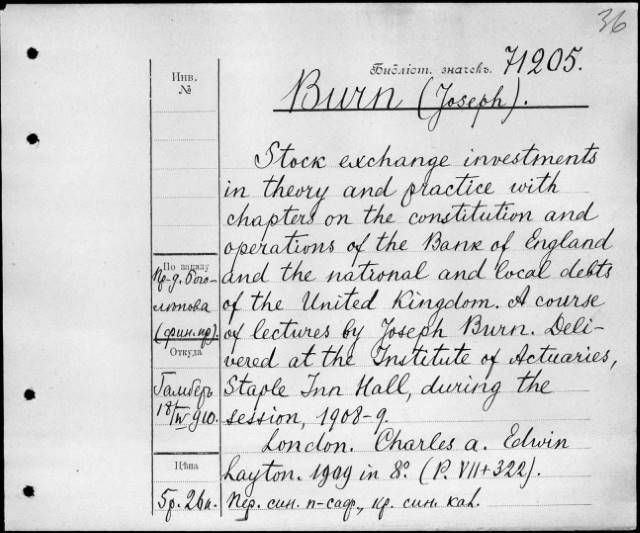 36
Библіот. значекъ. 71205.
Burn (Joseph).
Инв.
№
Stock exchange investments
in theory and practice with
chapters on the constitution and
operations of the Bank of England
and the national and local debts
of the United Kingdom. A course
of lectures by Joseph Burn. Deli-
vered at the Institute of Actuaries,
Staple Inn Hall, during the
session, 1908-9.
London. Charles a. Edwin
Layton. 1909 in 8º. (P. VII+322).
Пер. син. п-саф., кр. син. кан.
По заказу
Пр-д. Бого-
лѣпова
(фин. пр).
Откуда
Гамберъ
18/IV 910.
Цѣна
5р. 26к.